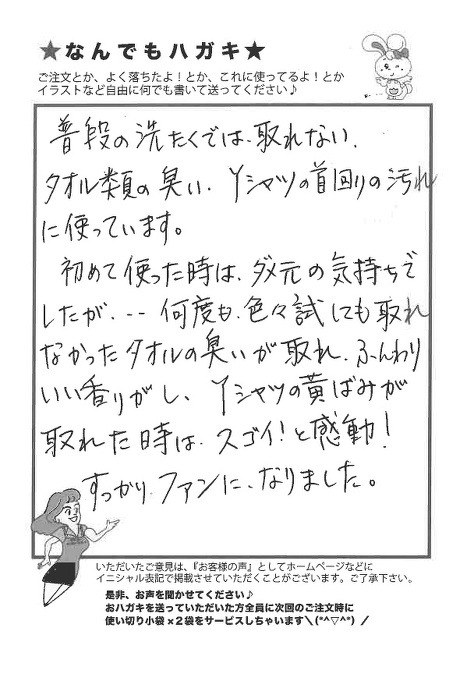 ★なんでもハガキ★
ご注文とか、よく落ちたよ！とか、これに使ってるよ！とか
イラストなど自由に何でも書いて送ってください♪
普段の洗たくでは、取れない、
タオル類の臭い、Yシャツの首回りの汚れ
に使っています。
初めて使った時は、ダメ元の気持ちで
したが、-- 何度も、色々試しても取れ
なかったタオルの臭いが取れ、ふんわり
いい香りがし、Yシャツの黄ばみが
取れた時は、スゴイ！と感動！
すっかり、ファンに、なりました。
いただいたご意見は、『お客様の声』としてホームページなどに
イニシャル表記で掲載させていただくことがございます。ご了承下さい。
是非、お声を聞かせてください♪
おハガキを送っていただいた方全員に次回のご注文時に
使い切り小袋×2袋をサービスしちゃいます＼(*^▽^*)／